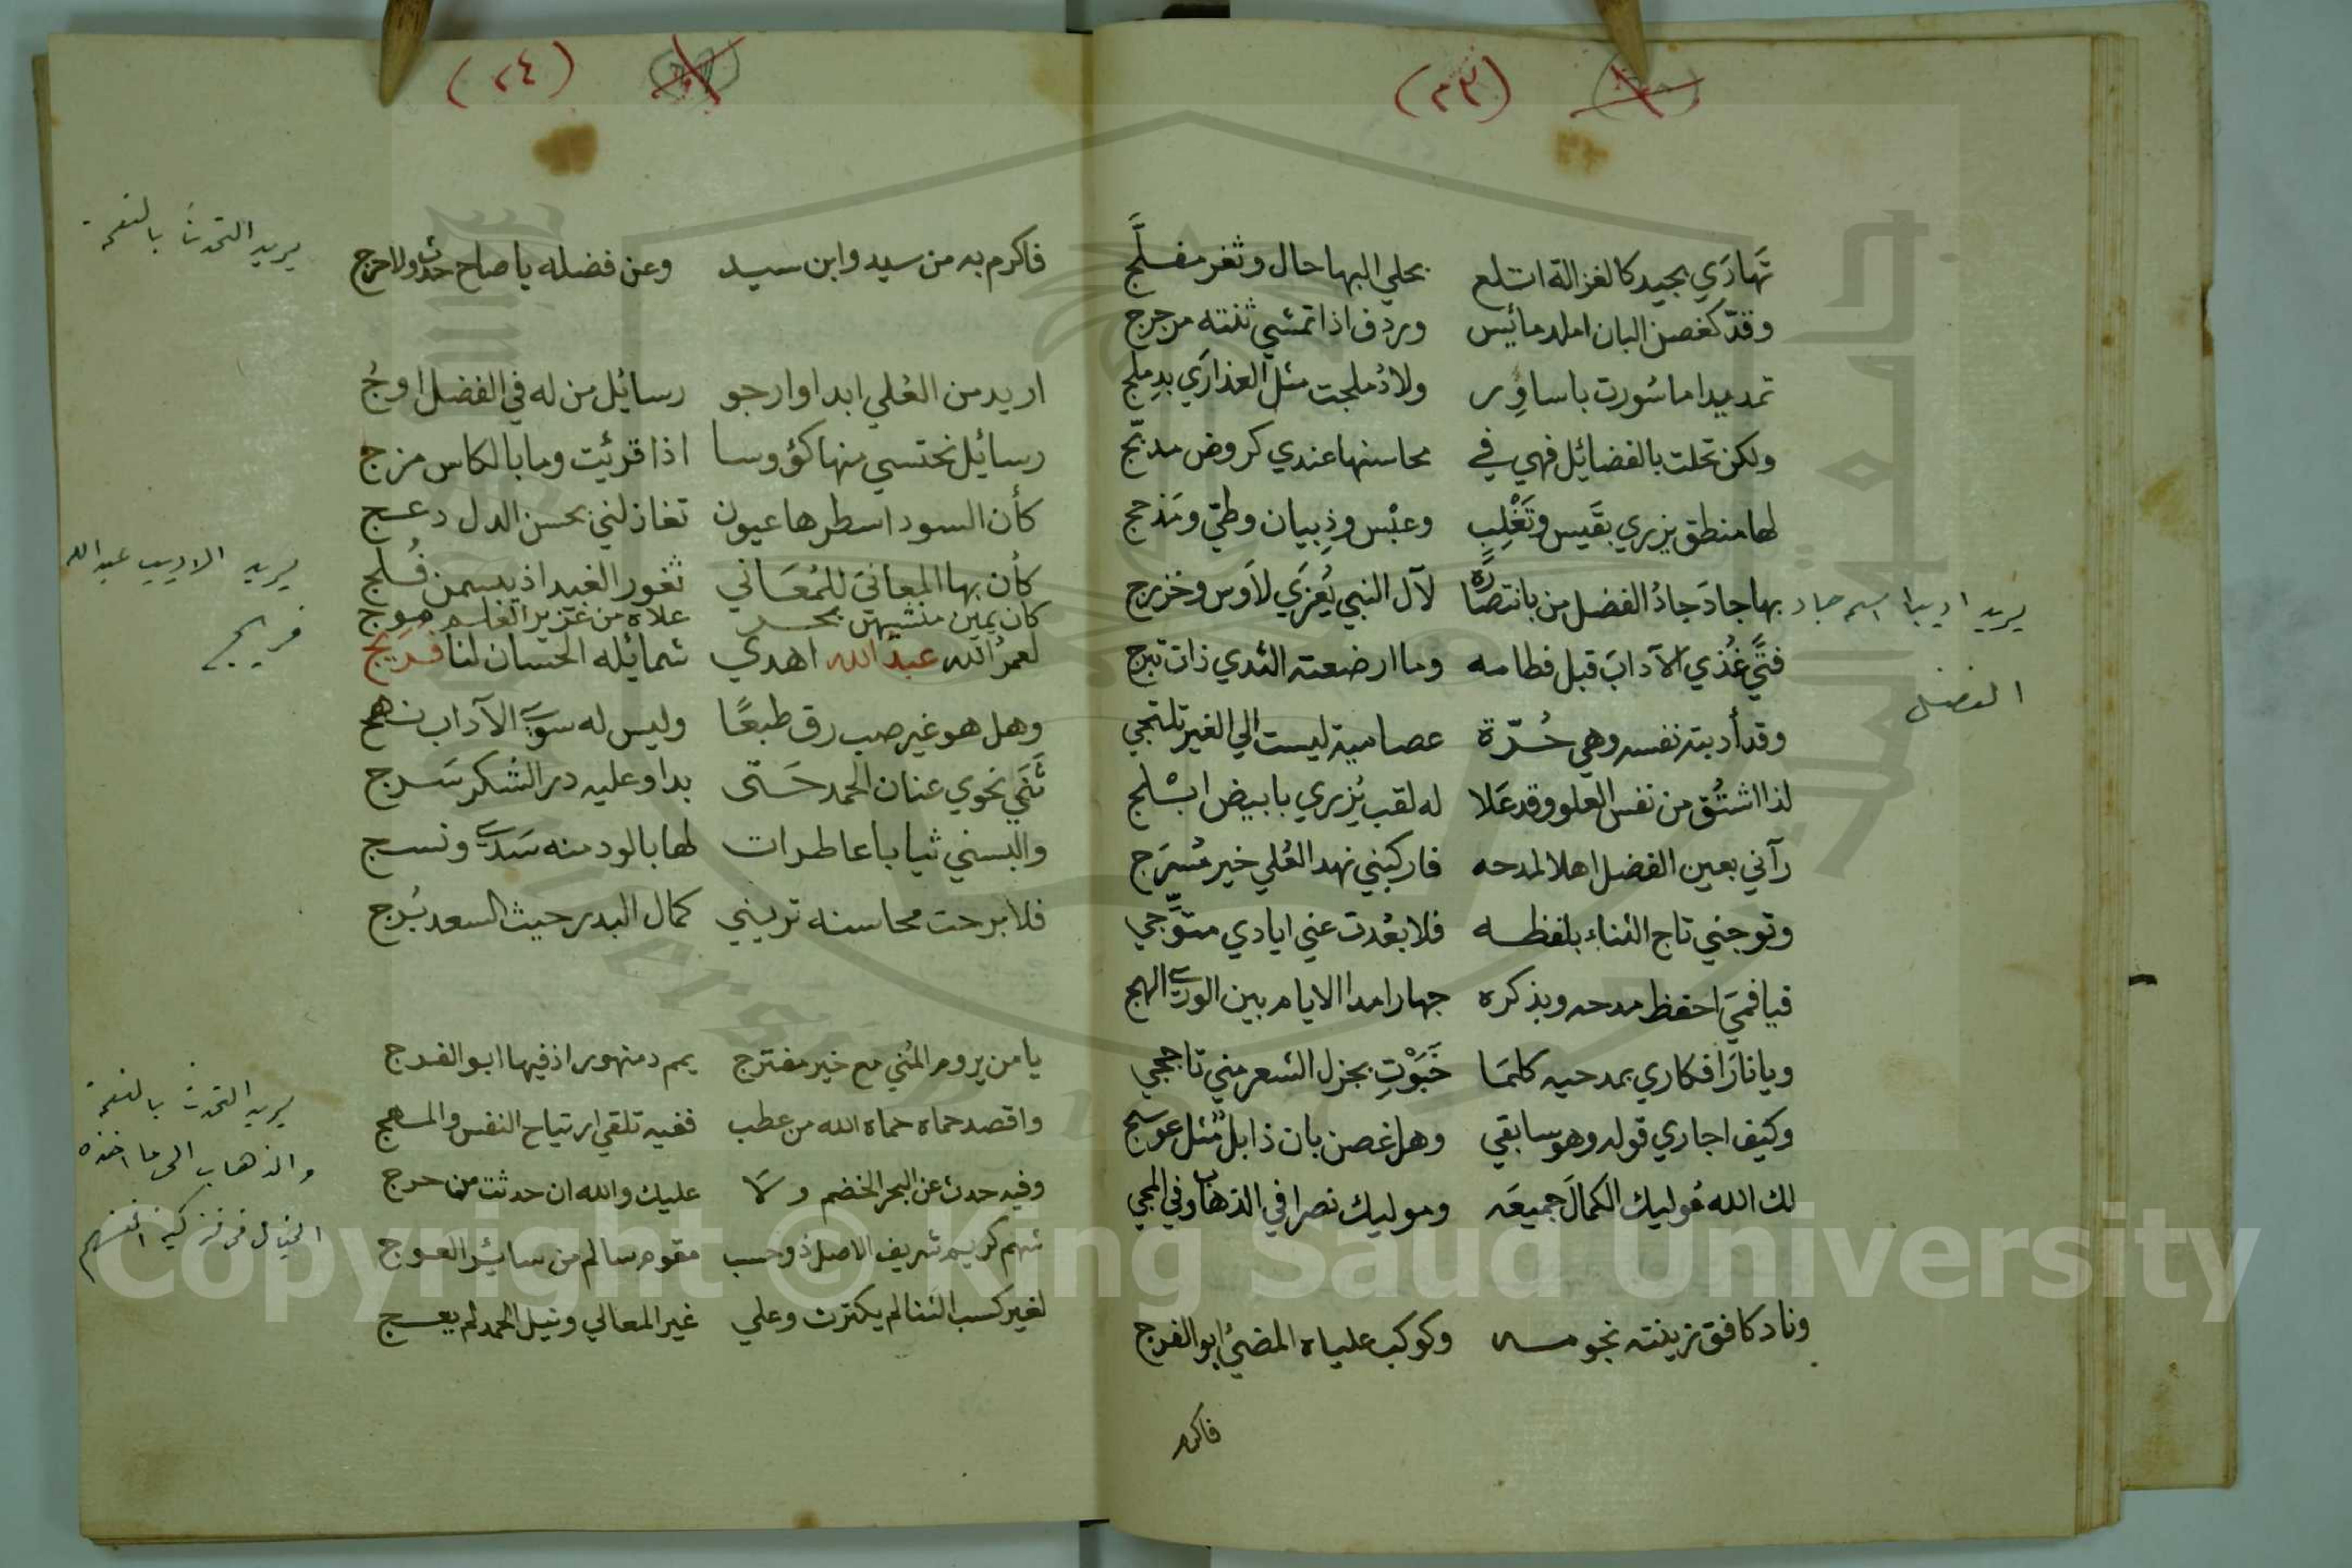 (٢٣)
تَهادَي بجيد كالغزالة اتلع بحلي البها حال وثغر مفلَّج
وقدّ كغصن البان املد مائيس وردف اذا تمشي ثنته مرجرج
تمد يدا ما سُورت باساوِر ولا دُملجت مثل العذارَي بدِملج
ولكن تحلت بالفضائيل فهي في محاسنها عندي كروض مدبَّج
لها منطق يزري بقَيس وتَغْلِب وعبْس وذِبيان وطيّ ومَذحج
بها جادَ جادُ الفضل من بانتصارِه لآل النبي يُعزَي لاَوس وخزرج
يريد اديبا اسمه جاد
الفضل
فتَّي غُذي الآدابَ قبل فطامه وما ارضعته الثدي ذات تبرج
وقد أدبته نفسه وهي حُرّة عصامية ليست الي الغير تلتجي
لذا اشتُق من نفس العلو وقد عَلا له لقب يُزري بابيض ابْلج
رآني بعين الفضل اهلا لمدحه فاركبني نهد العُلي خير مُسرَج
وتوجني تاج الثناء بلفظه فلا بعُدت عني ايادي متوِّجي
فيا فمَي احفظ مدحه وبذكره جهارا مدا الايام بين الورَي الهج
ويا نارَ افكاري بمدحيه كلمَا خَبَوْتِ بجزل الشعر مني تاججي
وكيف اجاري قوله وهو سابقي وهل غصن بان ذابل مثل عوسج
لك الله مُوليك الكمالَ جميعَه وموليك نصرا في الذهاب وفي المجي
وناد كافق زينته نجومه وكوكب علياه المضيُ ابو الفرج
فاكرم
(٢٤)
فاكرم به من سيد وابن سيد وعن فضله يا صاح حدث ولا حرج
يريد التحدث بالنعمة
اريد من العُلي ابدا وارجو رسائيل من له في الفضل اوجُ
رسائيل نحتسي منها كؤوسا اذا قرئيت وما بالكاس مزج
كأن السود اسطرها عيون تغازلني بحسن الدل دعج
كأن بها المعانيَ للمُعَاني ثغور الغيد اذ يبسمن فُلج
يريد الاديب عبد الله
فريج
كان يمين منشيهن بحر علاه من غزير العلم موج
لعمرُ الله عبد الله اهدي شمائيله الحسان لنا فَريَج
وهل هو غير صب رق طبعًا وليس له سوَي الآداب نهج
ثَنَي نحوي عنان الحمد حَتى بدا وعليه در الشكر سَرج
والبسني ثيابا عاطرات لها بالود منه سَدَي ونسج
فلا برحت محاسنه تريني كمال البدر حيث السعد بُرج
يا من يروم المُني مع خير مفترج يمم دمنهور اذ فيها ابو الفرج
واقصد حماه حماه الله من عطب ففيه تلقي ارتياح النفس والمهج
وفيه حدث عن البحر الخضم ولَا عليك والله ان حدثت من حرج
شهم كريم شريف الاصل ذو حسب مقوم سالم من سائير العوج
لغير كسب الثنا لم يكترث وعلي غير المعالي ونيل الحمد لم يعج
يريد التحدث بالنعمة
والذهاب الى ما اخذه
Copyright © King Saud University